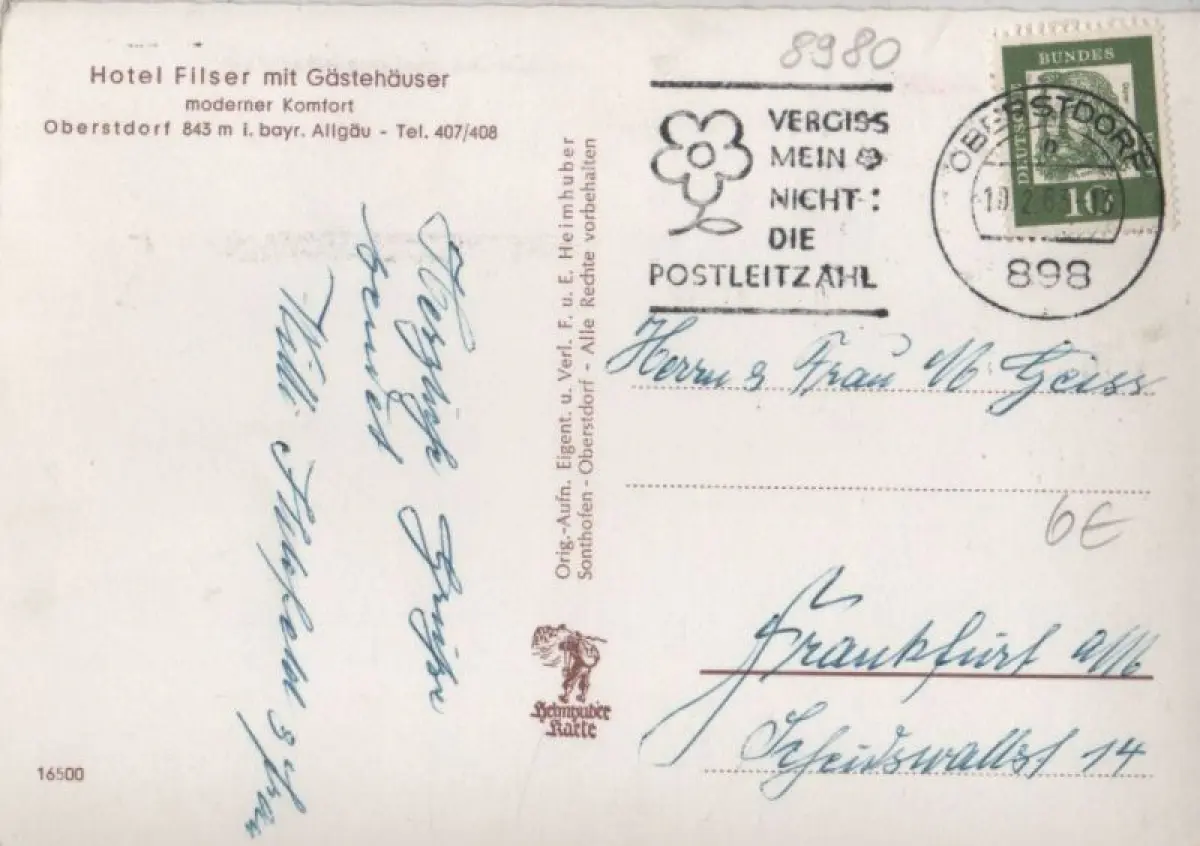 Hotel Filser mit Gästehäuser
moderner Komfort
Oberstdorf 843 m i. bayr. Allgäu - Tel. 407/408
Herzlich Grüße
sendet
Willi & Frau
16500
Orig.-Aufn. Eigent. u. Verl. F. u. E. Heimhuber
Sonthofen - Oberstdorf - Alle Rechte vorbehalten
Heimhuber
Karte
8980
VERGISS
MEIN
NICHT:
DIE
POSTLEITZAHL
OBERSTDORF
n
898
DEUTSCHE
BUNDES
10
Herrn & Frau Geiss
6€
Frankfurt a/M
Scheidswaldst 14